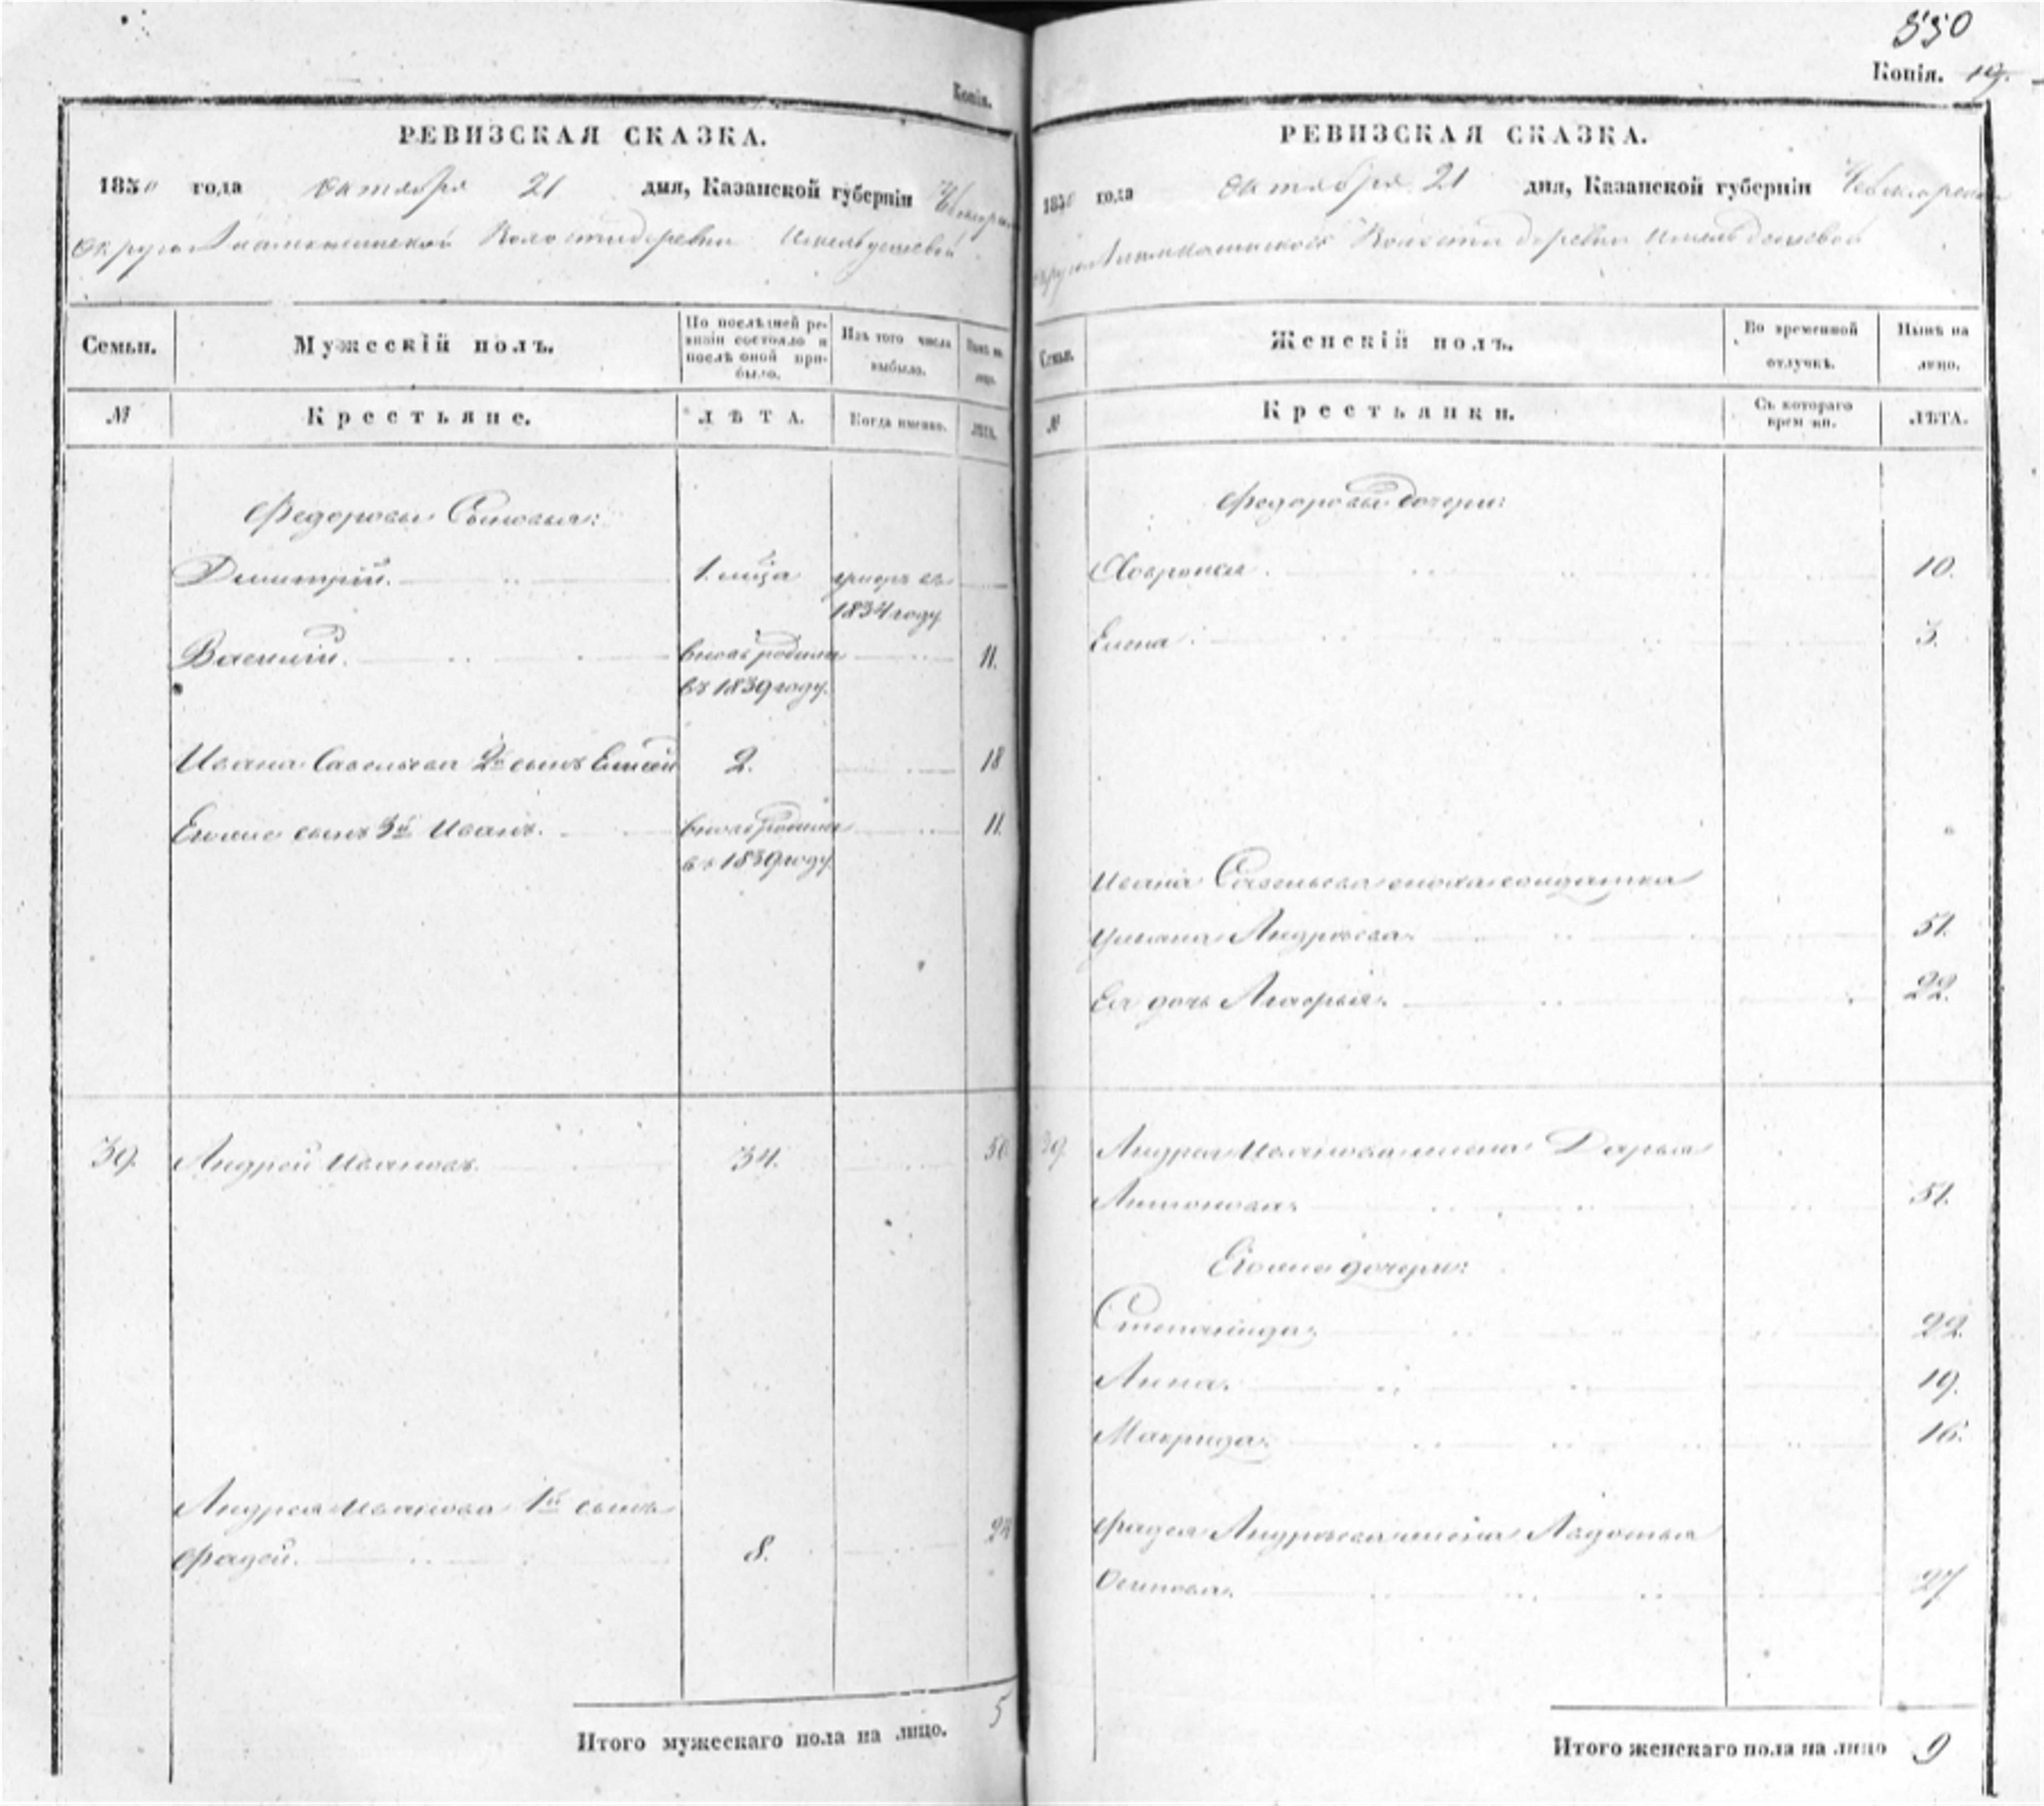 550
Копія. 19.
Копія.
РЕВИЗСКАЯ СКАЗКА.
1850 года октября 21 дня, Казанской губерніи Чебоксар
Округа Акамкашинской Волости деревни
Семьи. Мужескій полъ. По послѣдней ревизіи состояло и послѣ оной прибыло. Изъ того числа выбыло. Нынѣ на лицо.
№ Крестьяне. ЛѢТА. Когда именно. ЛѢТА.
Федоровы Сыновья:
Димитрій. 1. мца умеръ въ
1834 году
Василій. вновь родился 11.
въ 1839 году.
Ивана Савельева 2й сынъ 2. 18
Егоже сынъ 3й Иванъ. вновь родился 11.
въ 1839 году.
39. Андрей Ивановъ. 34. 50
Андрея Иванова 1й сынъ
Фадей. 8. 24
Итого мужескаго пола на лицо. 5
РЕВИЗСКАЯ СКАЗКА.
1850 года октября 21 дня, Казанской губерніи Чебоксарской
округа Акамкашинской Волости деревни
Семьи. Женскій полъ. Во временной отлучкѣ. Нынѣ на лицо.
№ Крестьянки. Съ котораго времени. ЛѢТА.
Федоровы дочери:
Ховронья. 10.
Елена 3.
Ивана Савельева сноха солдатка
Ульяна Андреева. 51.
Ея дочь Агафья. 22.
39. Андрея Иванова жена Дарья
Антонова. 51.
Егоже дочери:
Степанида. 22.
Анна. 19.
Макрида. 16.
Фадея Андреева жена Авдотья
Осипова. 27
Итого женскаго пола на лицо 9